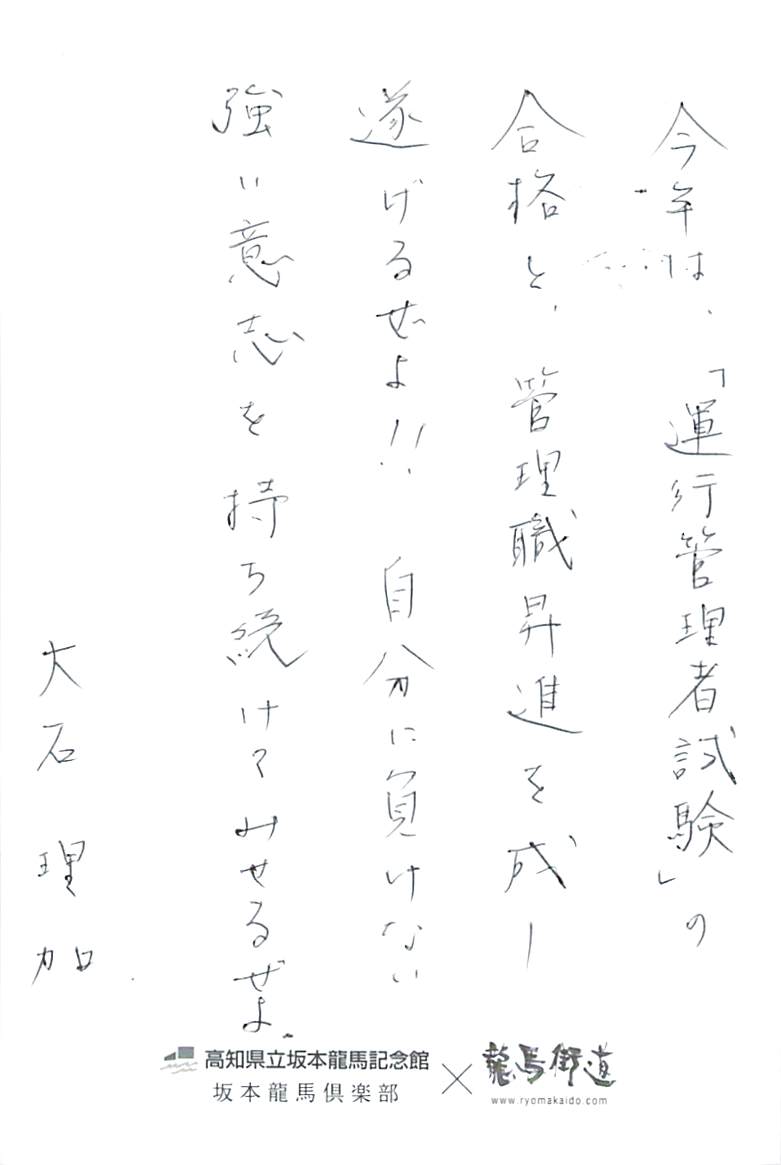 今年は、「運行管理者試験」の
合格と、管理職昇進を成し
遂げるぜよ!! 自分に負けない
強い意志を持ち続けてみせるぜよ。
大石 理加
高知県立坂本龍馬記念館
坂本龍馬倶楽部
×
龍馬街道
www.ryomakaido.com